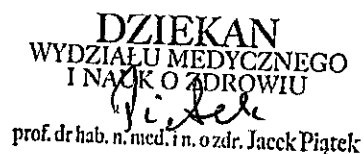 DZIEKAN
WYDZIAŁU MEDYCZNEGO
I NAUK O ZDROWIU
Piątek
prof. dr hab. n. med. i n. o zdr. Jacek Piątek